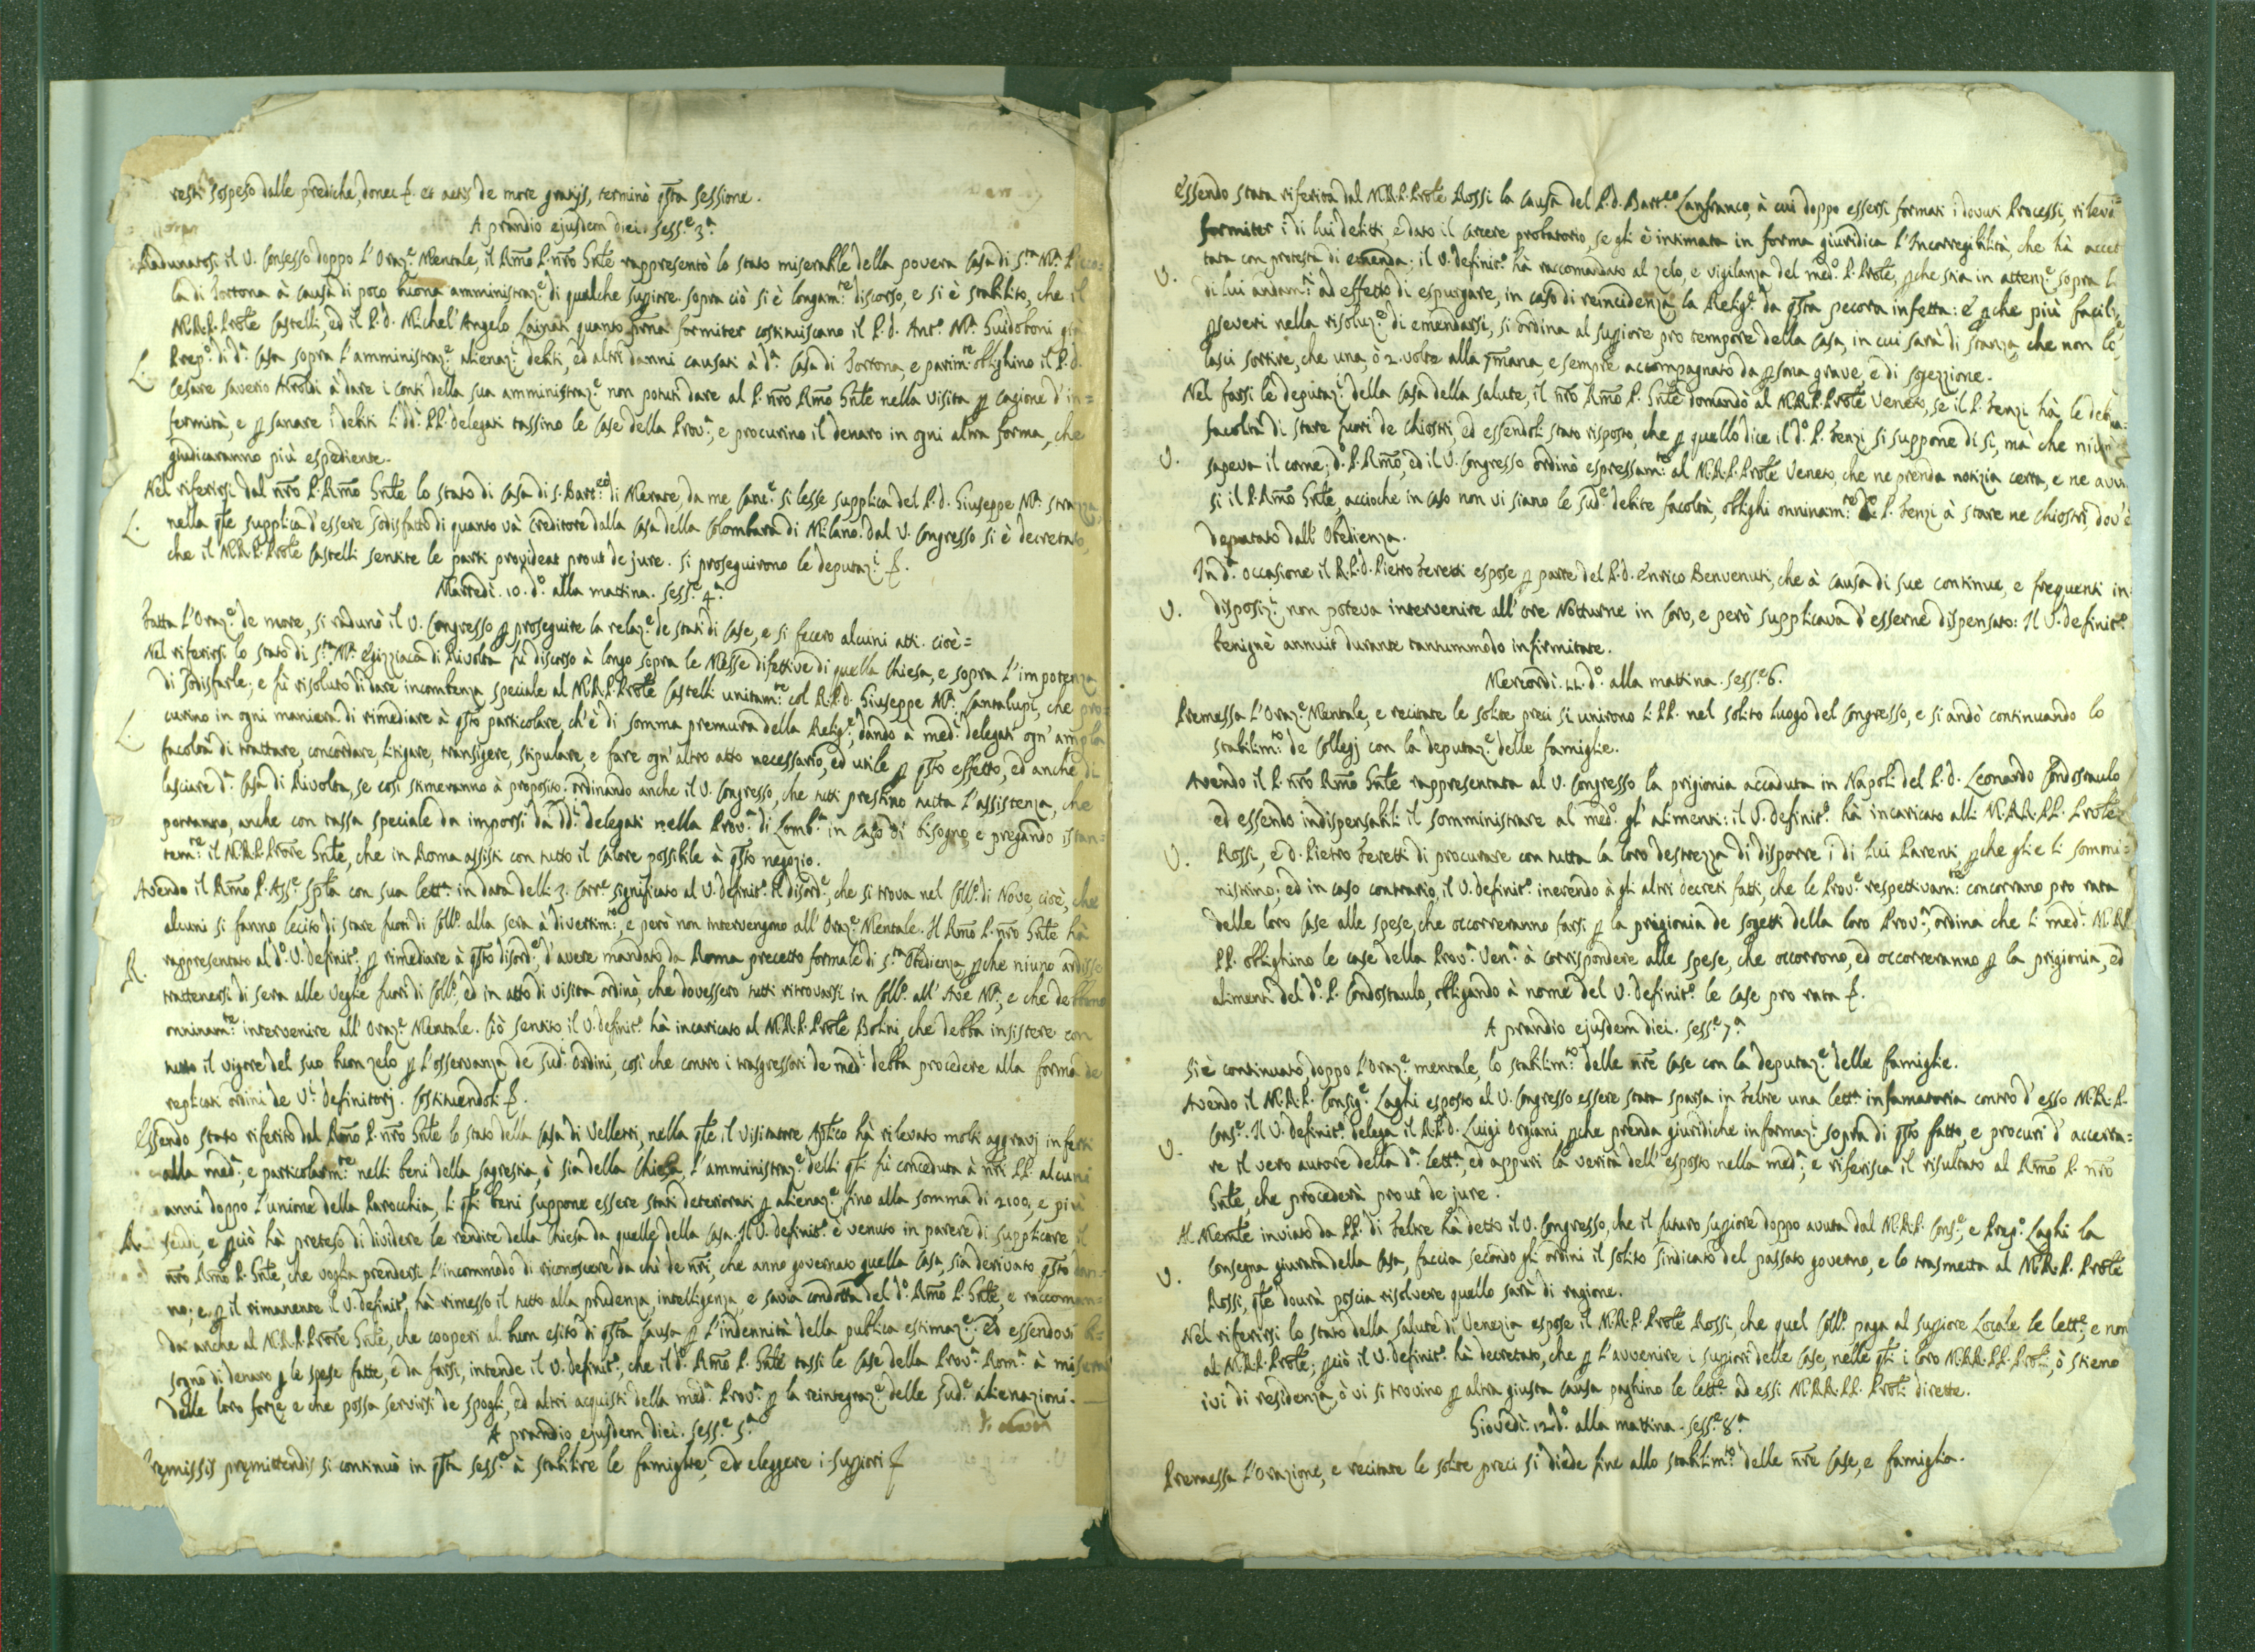 resti sospeso dalle prediche, donec &. et actis de more gratijs, terminò qsta sessione.
A prandio ejusdem diei. sess.e 3.a
Radunatosi il V. Consesso doppo l'Oraz.e Mentale, il Rmo P. nro Gnle rappresentò lo stato miserabile della povera Casa di S.ta M.a
la di Tortona à causa di poco buona amministraz.e di qualche supiore. sopra ciò si è longam.te discorso, e si è stabilito, che il
M.R.P. Prole Castelli, ed il P.d. Michel'Angelo Lainati quanto prima formiter costituiscano il P.d. Ant.o M.a Guidoboni già
L. Prep.o di d.a Casa sopra l'amministraz.e alienaz.i debiti, ed altri danni causati à d.a Casa di Tortona, e parim.te oblighino il P.d.
Cesare Saverio Airoldi à dare i conti della sua amministraz.e non potuti dare al P. nro Rmo Gnle nella visita p cagione d'in=
fermità, e p sanare i debiti li dd.i PP. delegati tassino le Case della Prov.a, e procurino il denaro in ogni altra forma, che
giudicaranno più espediente.
Nel riferirsi dal nro P. Rmo Gnle lo stato di Casa di S. Bart.eo di Merate, da me Canc.e si lesse supplica del P.d. Giuseppe M.a Strazza,
L. nella qle supplica d'essere sodisfatto di quanto và Creditore dalla Casa della Colombara di Milano. Dal V. Congresso si è decretato,
che il M.R.P. Prole Castelli sentite le parti provideat prout de jure. si proseguirono le deputaz.i &.
Martedì. 10. d.o alla mattina. sess.e 4.a
Fatta l'Oraz.e de more, si radunò il V. Congresso p proseguire la relaz.e de stati di Case, e si fecero alcuni atti. cioè=
Nel riferirsi lo stato di S.ta M.a Egizziaca di Rivolta fù discorso à longo sopra le Messe difettive di quella Chiesa, e sopra l'impotenza
di sodisfarle; e fù risoluto di dare incombenza speciale al M.R.P. Prole Castelli unitam.te col R.P.d. Giuseppe M.a Cantalupi, che pro=
curino in ogni maniera di rimediare à qsto particolare, ch'è di somma premura della Relig.e, dando à med.i delegati ogn'ampla
L. facoltà di trattare, concordare, litigare, transigere, stipulare, e fare ogn'altro atto necessario, ed utile p qsto effetto, ed anche di
lasciare d.a Casa di Rivolta, se così stimeranno à proposito. ordinando anche il V. Congresso, che tutti prestino tutta l'assistenza, che
porranno, anche con tassa speciale da imporsi da dd.i delegati nella Prov.a di Lomb.a in caso di bisogno, e pregando istan=
tem.te il M.R.P. Prore Gnle, che in Roma assisti con tutto il calore possibile à qsto negozio.
Avendo il Rmo P. Ass.e Spla con sua lett.a in data delli 3. corr.e significato al V. definit.o il disord.e, che si trova nel Coll.o di Nove, cioè, che
alcuni si fanno lecito di stare fuori di Coll.o alla sera à divertim.to, e però non intervengono all'Oraz.e Mentale. Il Rmo P. nro Gnle hà
rappresentato al d.o V. definit.o p rimediare à qsto disord.e d'avere mandato da Roma precetto formale di S.ta Obedienza, pche niuno ardisse
R. trattenersi di sera alle veglie fuori di Coll.o, ed in atto di visita ordinò, che dovessero tutti ritrovarsi in Coll.o all'Ave M.a, e che debbano
onninam.te intervenire all'Oraz.e Mentale. Ciò sentito il V. definit.o hà incaricato al M.R.P. Prole Bolini, che debba insistere con
tutto il vigore del suo buon zelo p l'osservanza de sud.i ordini, così che contro i trasgressori de med.i debba procedere alla forma de
replicati ordini de V.i definitorj. Costituendoli &.
Essendo stato riferito dal Rmo P. nro Gnle lo stato della Casa di Velletri, nella qle il visitatore Aplico hà rilevato molti aggravj inferti
alla med.a, e particolarm.te nelli beni della sagrestia, ò sia della Chiesa, l'amministraz.e delli qli fù conceduta à nri PP. alcuni
anni doppo l'unione della Parocchia, li qli beni suppone essere stati deteriorati p alienaz.e fino alla somma di 2100, e più
R. scudi, e pciò hà preteso di dividere le rendite della Chiesa da quelle della Casa. Il V. definit.o è venuto in parere di supplicare il
nro Rmo P. Gnle, che voglia prendersi l'incommodo di riconoscere da chi de nri, che anno governato quella Casa, sia derivato qsto dan=
no; e p il rimanente il V. definit.o hà rimesso il tutto alla prudenza intelligenza, e savia condotta del d.o Rmo P. Gnle, e raccoman=
da anche al M.R.P. Prore Gnle, che cooperi al buon esito di qsta Causa p l'indennità della publica estimaz.e. Ed essendovi bi=
sogno di denaro p le spese fatte, e da farsi, intende il V. definit.o, che il d.o Rmo P. Gnle tassi le Case della Prov.a Rom.a à misura
delle loro forze, e che possa servirsi de spogli, ed altri acquisti della med.a Prov.a p la reintegraz.e delle sud.e alienazioni.
A prandio ejusdem diei. sess.e 5.a
Premissis premittendis si continuò in qsta sess.e à stabilire le famiglie, ed eleggere i supiori &
Essendo stata riferita dal M.R.P. Prole Rossi la causa del P.d. Bart.eo Lanfranco, à cui doppo essersi formati i dovuti Processi, rilevati
formiter i di lui delitti, e dato il carcere probatorio, se gli è intimata in forma giuridica l'Incorregibilità, che hà accet
V. tata con protesta di emenda; il V. definit.o hà raccomandato al zelo, e vigilanza del med.o P. Prole, pche stia in attenz.e sopra li
di lui andam.ti ad effetto di espurgare, in caso di reincidenza, la Relig.e da qsta pecora infetta: E pche più facilm.te
pseveri nella risoluz.e di emendarsi, si ordina al supiore pro tempore della Casa, in cui sarà di stanza, che non lo
lasci sortire, che una, ò 2. volte alla ssmana, e sempre accompagnato da psona grave, e di sogezzione.
Nel farsi le deputaz.i della Casa della Salute, il nro Rmo P. Gnle domandò al M.R.P. Prole Veneto, se il P. Fenzi hà le debite
facoltà di stare fuori de Chiostri, ed essendoli stato risposto, che p quello dice il d.o P. Fenzi si suppone di sì, mà che niuno
V. sapeva il come; d.o P. Rmo, ed il V. Congresso ordinò espressam.te al M.R.P. Prole Veneto, che ne prenda notizia certa, e ne avvi
si il P. Rmo Gnle, accioche in caso non vi siano le sud.e debite facoltà, oblighi onninam.te d.o P. Fenzi à stare ne Chiostri, dov'è
deputato dall'Obedienza.
In d.a occasione il R.P.d. Pietro Feretti espose p parte del P.d. Enrico Benvenuti, che à causa di sue continue, e frequenti in
V. disposiz.i non poteva intervenire all'ore Notturne in Coro, e però supplicava d'esserne dispensato: Il V. definit.o
benignè annuit durante tantummodo infirmitate.
Mercordì. 11. d.o alla mattina. sess.e 6.a
Premessa l'Oraz.e Mentale, e recitate le solite preci si unirono li PP. nel solito luogo del Congresso, e si andò continuando lo
stabilim.to de Collegj con la deputaz.e delle famiglie.
Avendo il P. nro Rmo Gnle rappresentata al V. Congresso la prigionia accaduta in Napoli del P.d. Leonardo Condostaulo
ed essendo indispensabili il somministrare al med.o gl'alimenti: il V. definit.o hà incaricato alli M.R.R. PP. Prole
V. Rossi, e d. Pietro Feretti di procurare con tutta la loro destrezza di disporre i di lui Parenti pche glie li sommi=
nistrino; ed in caso contrario, il V. definit.o inerendo à gli altri decreti fatti, che le Prov.e respettivam.te concorrano pro rata
delle loro Case alle spese, che occorreranno farsi p la prigionia de sogetti della loro Prov.a, ordina che li med.i M.R.R.
PP. oblighino le case della Prov.a Ven.a à corrispondere alle spese, che occorrono, ed occorreranno p la prigionia, ed
alimenti del d.o P. Condostaulo, obligando à nome del V. definit.o le Case pro rata &.
A prandio ejusdem diei. sess.e 7.a
Si è continuato, doppo l'Oraz.e mentale, lo stabilim.to delle nre Case con la deputaz.e delle famiglie.
Avendo il M.R.P. Consig.e Laghi esposto al V. Congresso essere stata sparsa in Feltre una lett.a infamatoria contro d'esso M.R.P.
V. Cons.e. Il V. definit.o delega il R.P.d. Luigi Orgiani, pche prenda giuridiche informaz.i sopra di qsto fatto, e procuri d'accerta=
re il vero autore della d.a lett.a, ed appuri la verità dell'esposto nella med.a; e riferisca il risultato al Rmo P. nro
Gnle, che procederà prout de jure.
Al Memle inviato da PP. di Feltre hà detto il V. Congresso, che il futuro supiore doppo avuta dal M.R.P. Cons.e, e Prep.o Laghi la
V. consegna giurata della Casa, faccia secondo gli ordini il solito sindicato del passato governo, e lo trasmetta al M.R.P. Prole
Rossi, qle dovrà poscia risolvere quello sarà di ragione.
Nel riferirsi lo stato della Salute di Venezia espose il M.R.P. Prole Rossi, che quel Coll.o paga al supiore Locale le lett.e, e non
al M.R.P. Prole; pciò il V. definit.o hà decretato, che p l'avvenire i supiori delle Case, nelle qli i loro M.R.R. PP. Proli, ò stieno
ivi di residenza, ò vi si trovino p altra giusta causa paghino le lett.e ad essi M.R.R. PP. Proli dirette.
Giovedì. 12. d.o alla mattina. sess.e 8.a
Premessa l'Orazione, e recitate le solite preci si diede fine allo stabilim.to delle nre Case, e famiglia.